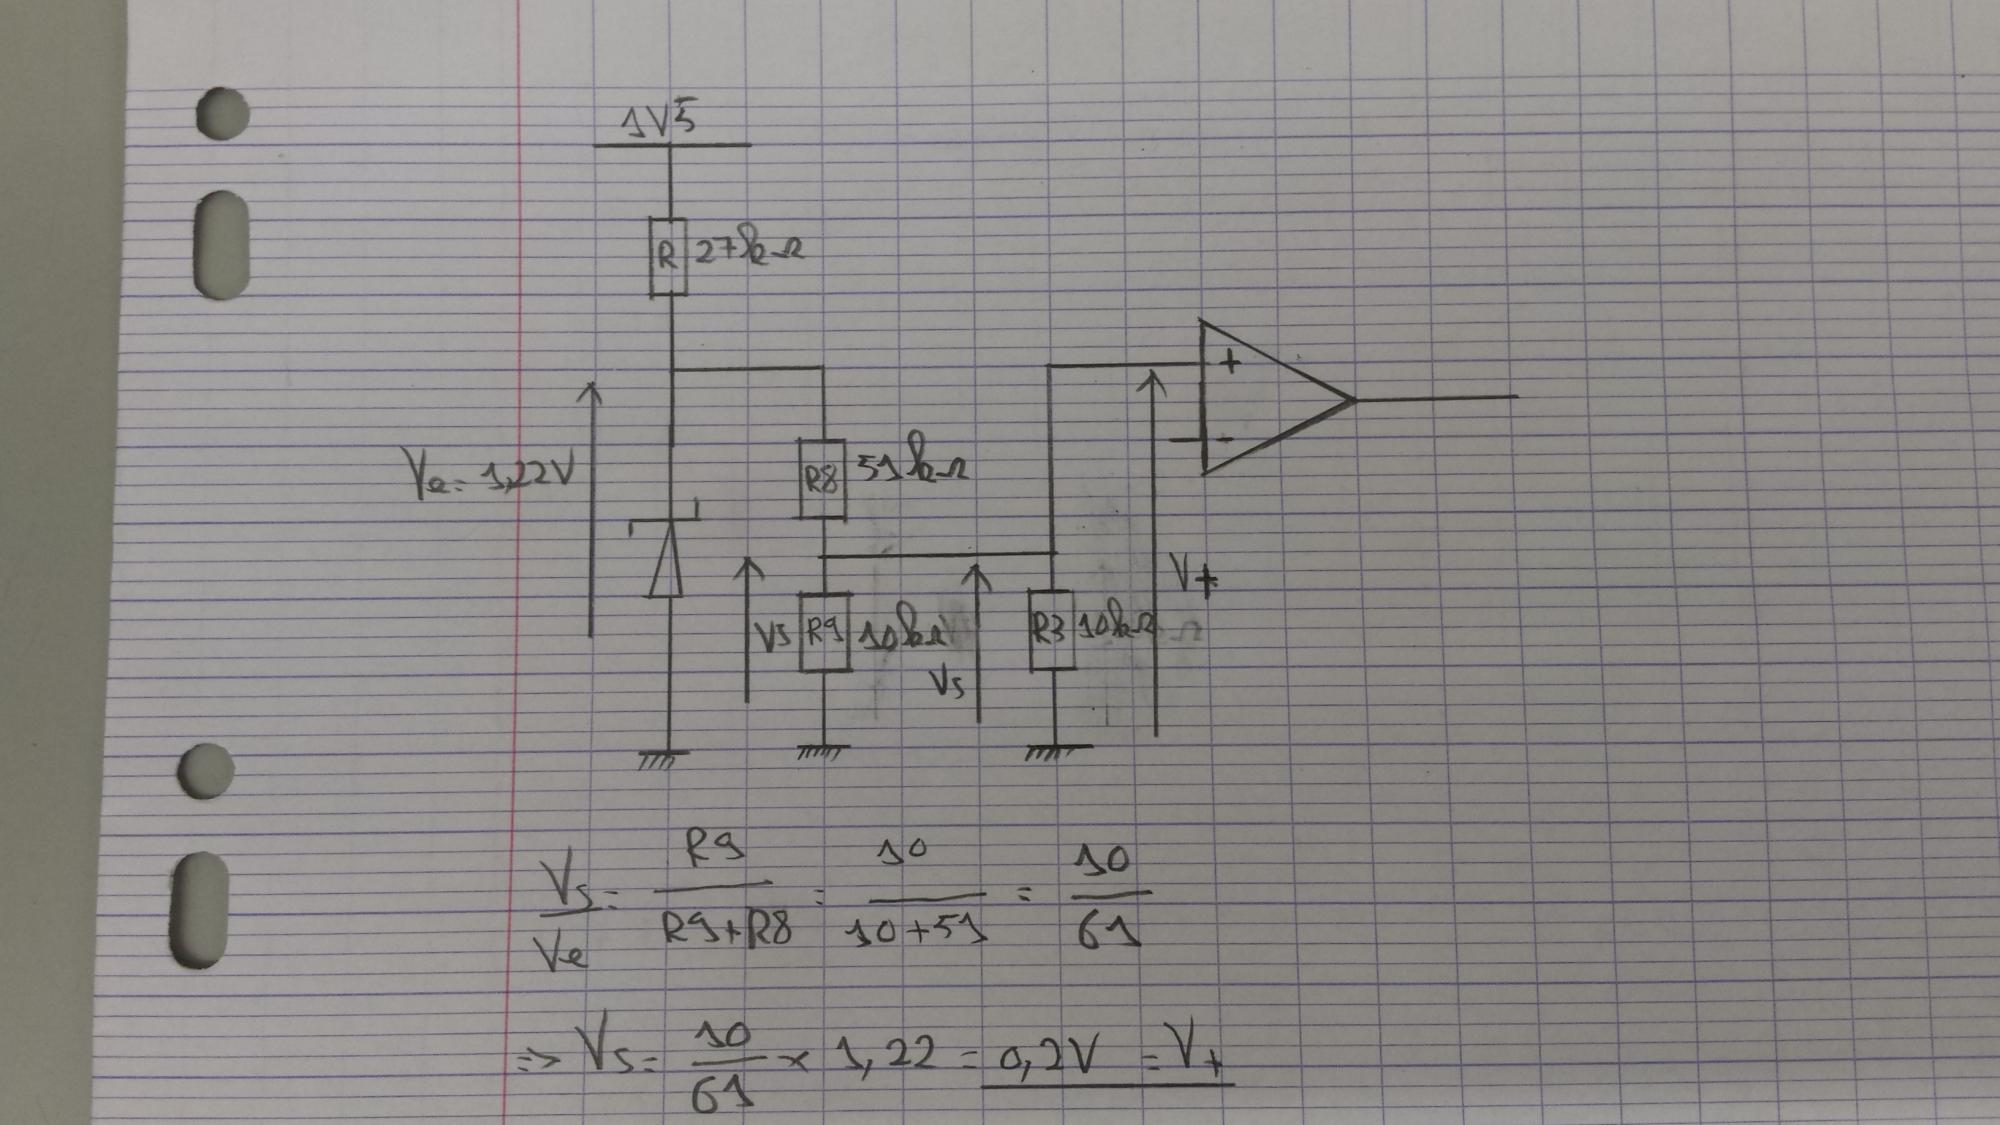 1V5
R 27kΩ
+
-
Ve = 1,22V
R8 51kΩ
V+
Vs R9 10kΩ
R3 10kΩ
Vs
Vs/Ve = R9/R9+R8 = 10/10+51 = 10/61
=> Vs = 10/61 × 1,22 = 0,2V = V+